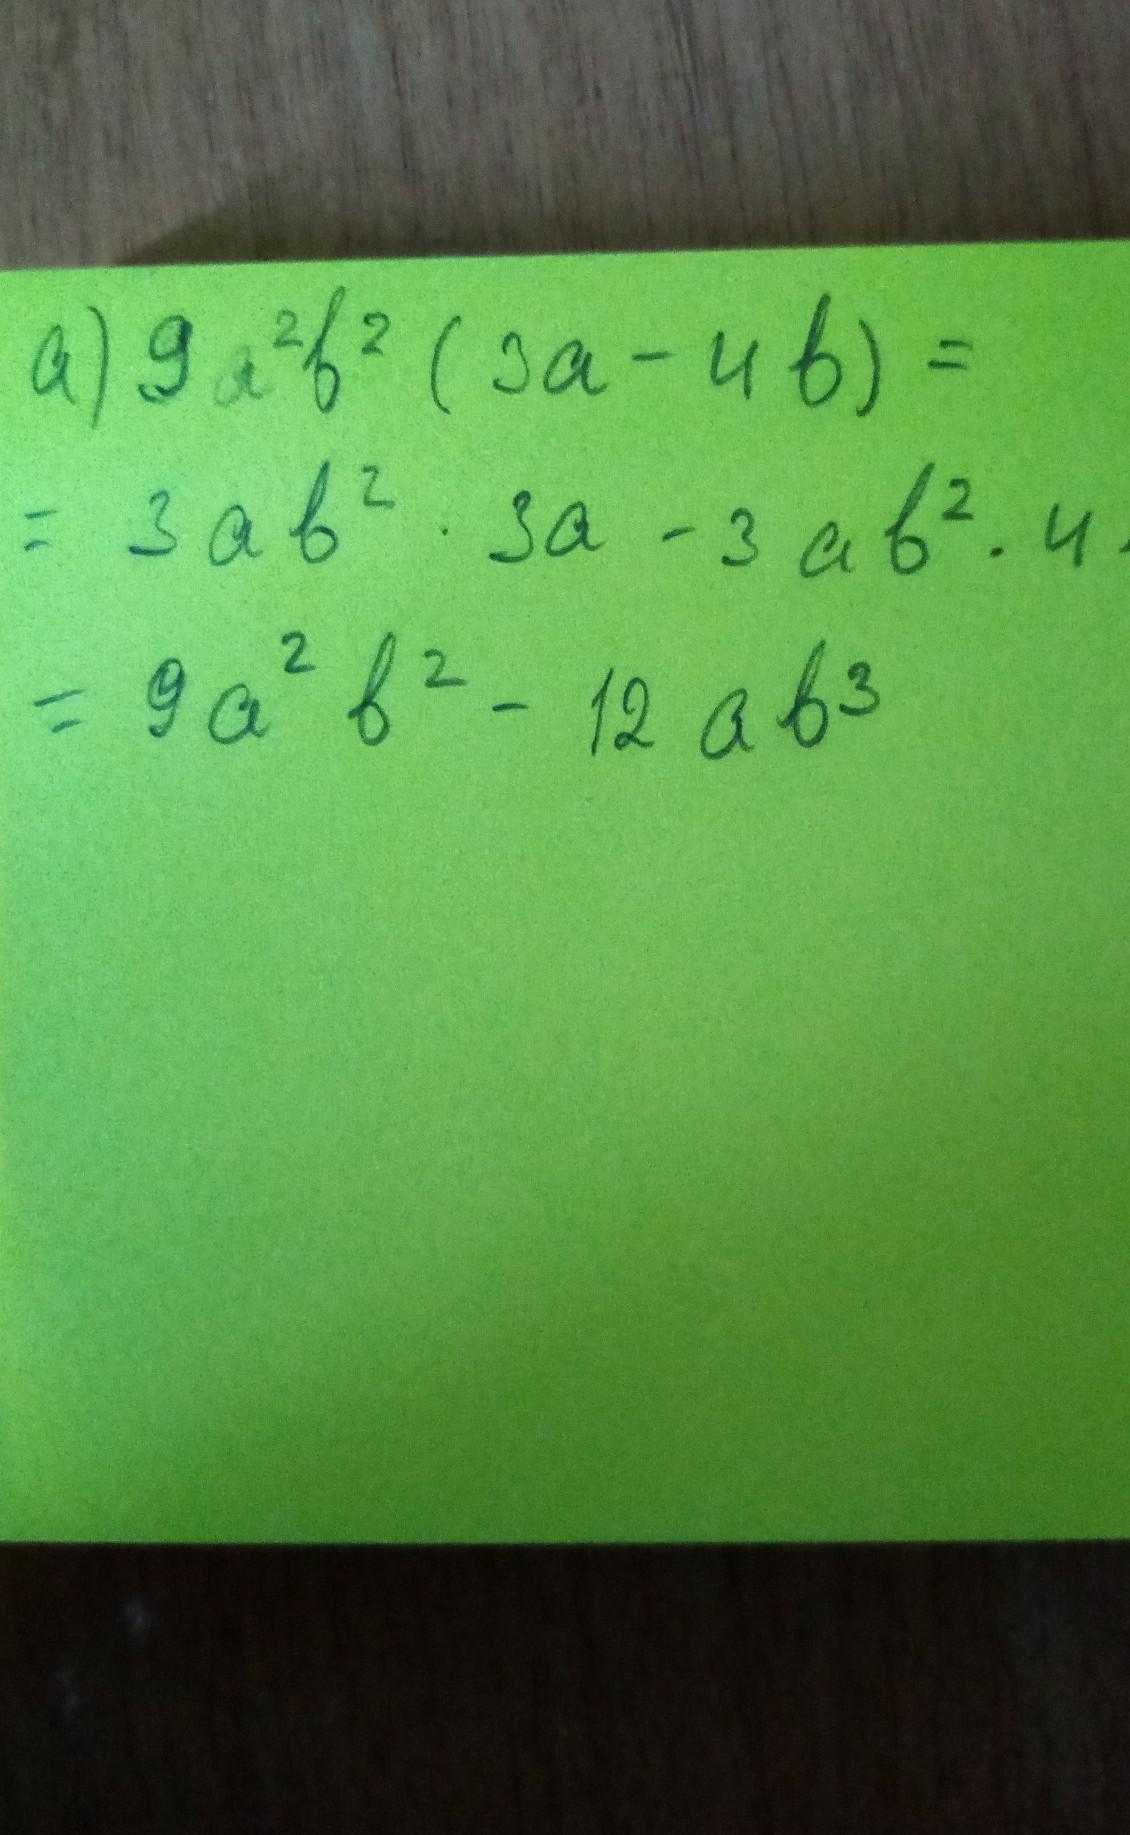 а) 9a²b² (3a - 4b) =
= 3ab² · 3a - 3ab² · 4
= 9a² b² - 12 ab³